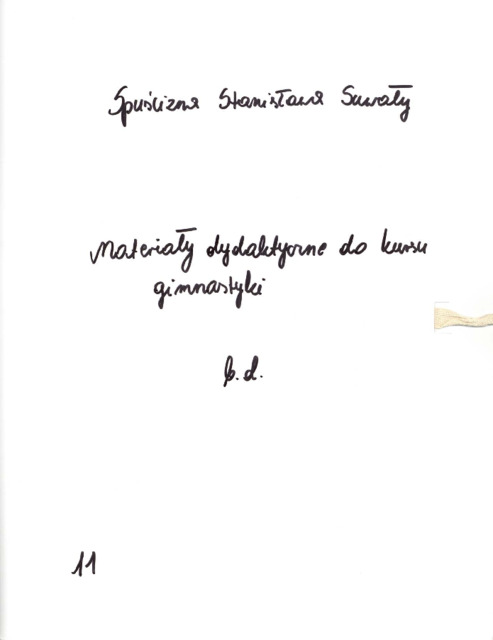 Spuścizna Stanisława Suwały
Materiały dydaktyczne do kursu
gimnastyki
b.d.
11